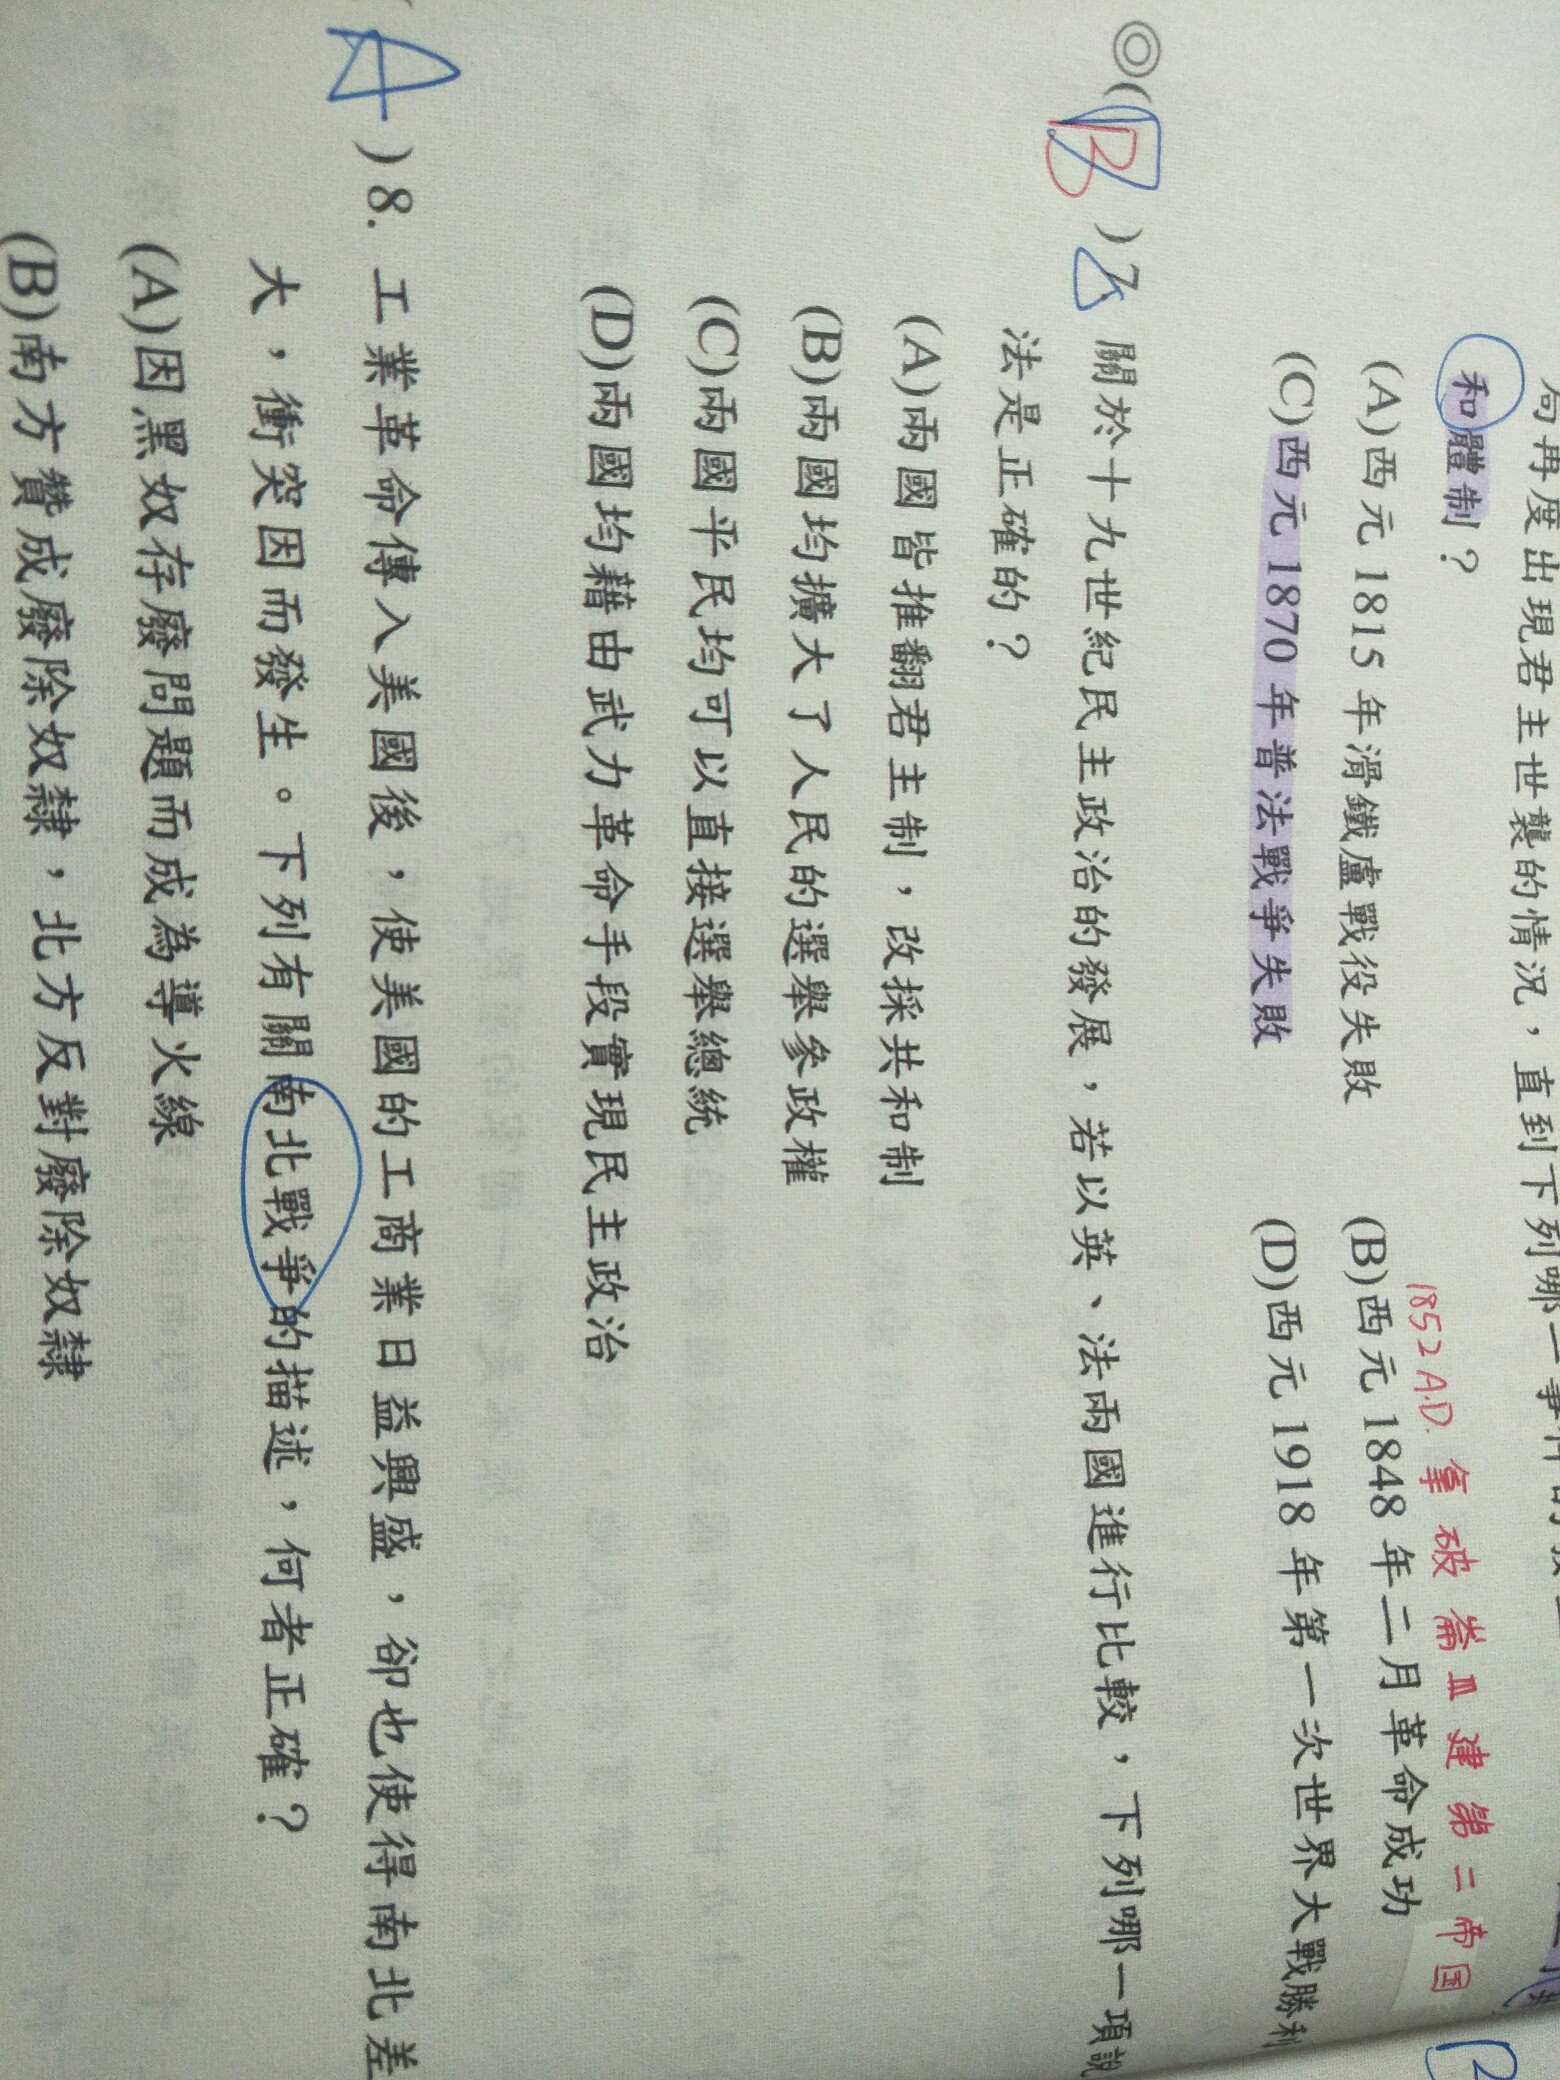 句再度出現君主世襲的情況，直到下列哪一事件的
和體制？
1852 A.D. 拿破崙Ⅲ建第二帝国
(A)西元 1815 年滑鐵盧戰役失敗 (B)西元 1848 年二月革命成功
(C)西元 1870 年普法戰爭失敗 (D)西元 1918 年第一次世界大戰勝利
◎( B )7. 關於十九世紀民主政治的發展，若以英、法兩國進行比較，下列哪一項說
法是正確的？
(A)兩國皆推翻君主制，改採共和制
(B)兩國均擴大了人民的選舉參政權
(C)兩國平民均可以直接選舉總統
(D)兩國均藉由武力革命手段實現民主政治
A )8. 工業革命傳入美國後，使美國的工商業日益興盛，卻也使得南北差
大，衝突因而發生。下列有關南北戰爭的描述，何者正確？
(A)因黑奴存廢問題而成為導火線
(B)南方贊成廢除奴隸，北方反對廢除奴隸